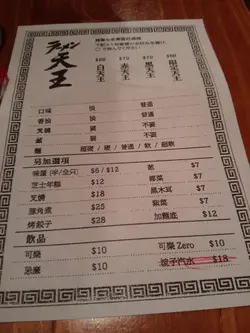 ラーメン 天王
$60 $70 $70 $80
白天王 赤天王 黒天王 限定天王
口味 淡 普通
香油 淡 普通
叉燒 要 不要
蔥 要 不要
麵 超硬 / 硬 / 普通 / 軟 / 超軟
另加選項
味蛋 (半/全只) $6 / $12 蔥 $7
芝士年糕 $12 椰菜 $7
叉燒 $18 黑木耳 $7
豚角煮 $25 $7
烤餃子 $28 加麵底 $12
飲品
可樂 $10 可樂 Zero $10
忌廉 $10 波子汽水 $18